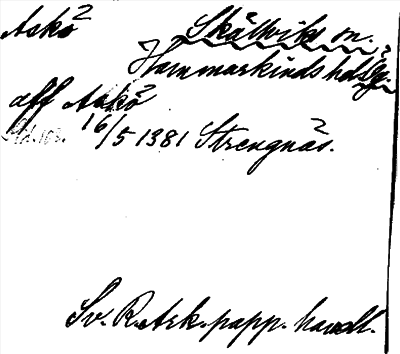 Askö Skällviks sn.
Hammarkinds hd Ög.
aff Askö
16/5 1381 Strengnäs.
Sv. R. Ark. papp. handl.